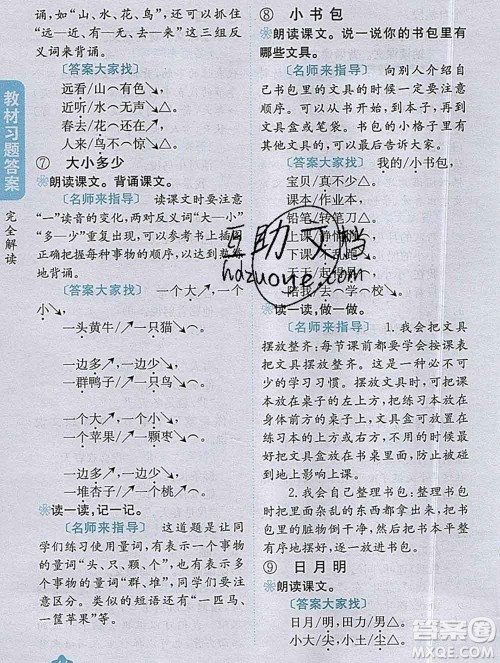 教材习题答案
完全解读
诵，如“山、水、花、鸟”，还可以抓住
“远—近、有—无、去—来”这三组反
义词来背诵。
〔答案大家找〕
远看/山︵有色↘，
近听/水︵无声△。
春去/花︵还在△，
人来/鸟︵不惊↘△。
⑦ 大小多少
❀朗读课文。背诵课文。
〔名师来指导〕 读课文时要注意
“一”读音的变化，两对反义词“大—小”
“多—少”重复出现，可以参考书上插图
正确把握每种事物的顺序，以达到熟
地背诵。
〔答案大家找〕 一个大↗，一个
小↘，
一头黄牛/↗一只猫↘△。
一边多↗，一边少↘，
一群鸭子/↗一只鸟↘△。
一个大↗，一个小↘，
一个苹果/↗一颗枣↘△。
一边多↗，一边少↘，
一堆杏子/↗一个桃↘△。
❀读一读，记一记。
〔名师来指导〕 这道题是让同
学们练习使用量词，有表示一个事物
的量词“头、只、颗、个”，也有表示多个
事物的量词“群、堆”，同学们要注意区
分。类似的短语还有“一匹马、
一筐苹果”等。
⑧ 小书包
❀朗读课文。说一说你的书包里有
哪些文具。
〔名师来指导〕 向别人介绍自
己书包里的文具的时候一定要注意
顺序。可以从大到小，从书本到文
具，从书包的大格到小格。如果有
其他文具，可以最后告诉大家。
〔答案大家找〕 我的/小书包，
宝贝/真不少△。
课本/作业本，
铅笔/转笔刀△。
上课/
下课/不乱跑↘△。
天天/起得早，
陪我/去︵学︵校△。
❀读一读，做一做。
〔名师来指导〕 1. 我会把文具
摆放整齐：每节课前都要把文具整
整齐齐地摆放在桌面。这是一种必不
可少的学习习惯。摆放文具时，可以把
课本放在桌子的左上角，把练习本放在
身体前方的桌面中央，文具盒可以放在
练习本的上方或右方，方便我们自如自
地地影响上课。
2. 我会自己整理书包：我们可以
把书包里面杂乱的东西都倒出来，把书
包里的脏物倒干净，然后，把书本平整
有序地摆好。
⑨ 日月明
❀朗读课文。
〔答案大家找〕
日月/明，田力/男△。
小大/尖，小土/尘△。
互助文档
hdzuowe.com
答案圈
MXQE.COM